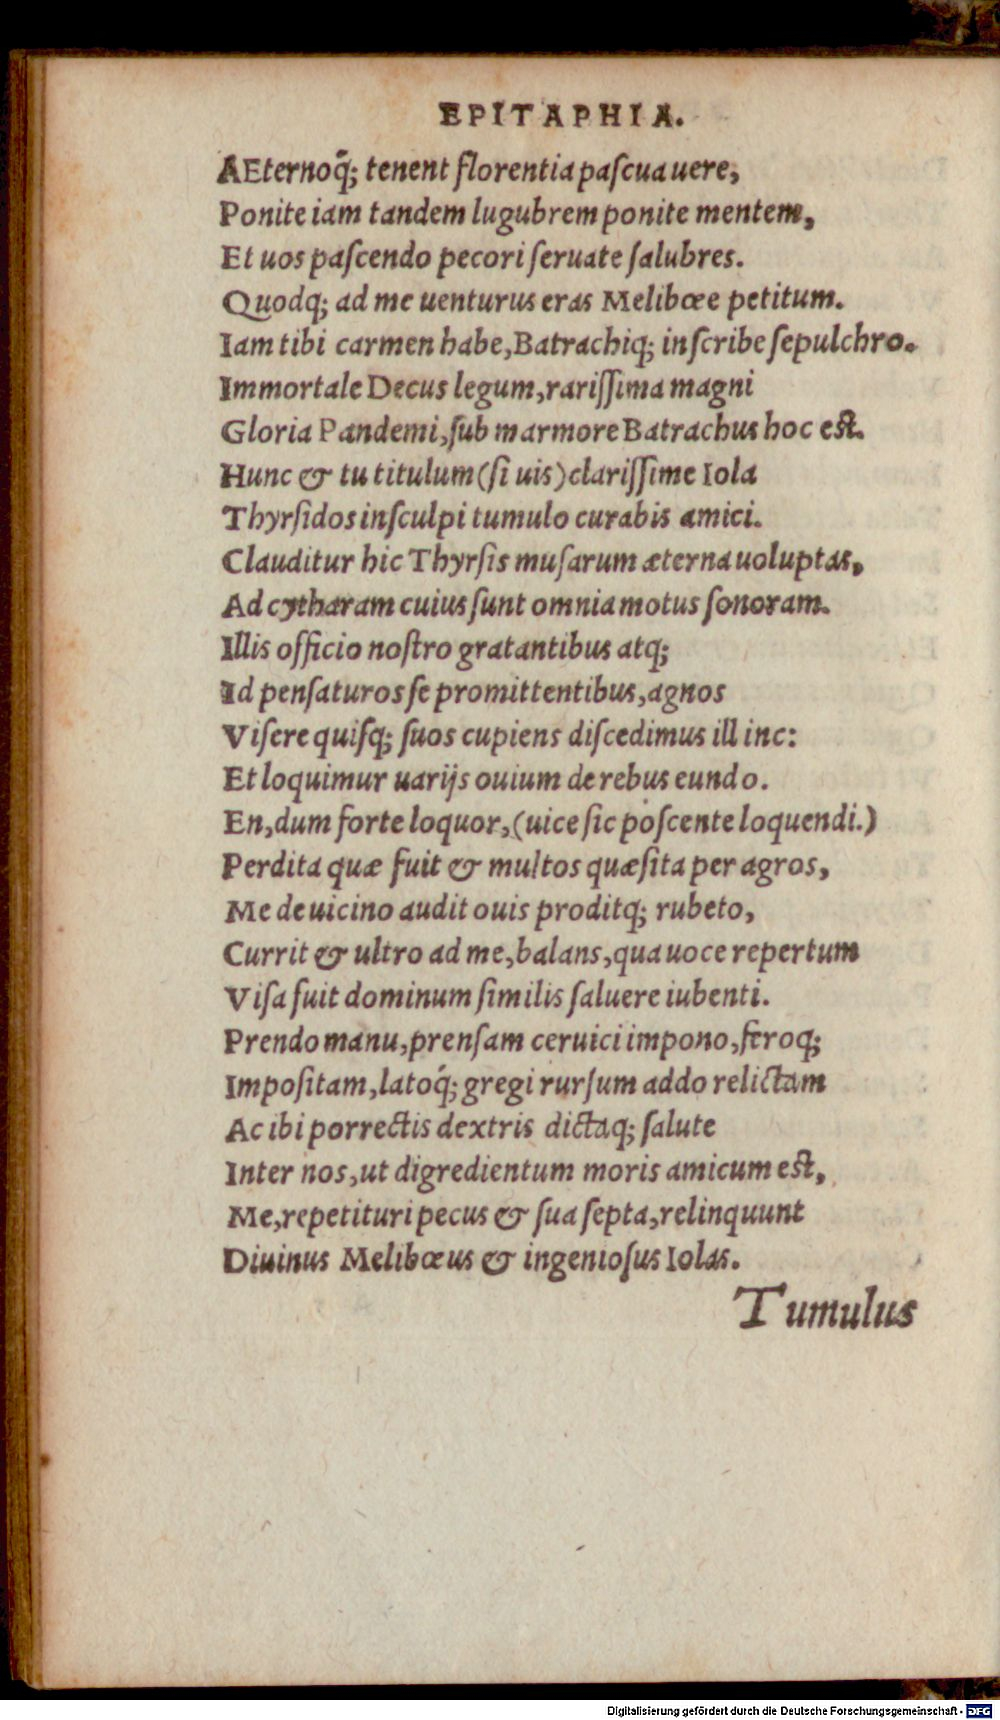 EPITAPHIA.
AEternoq́; tenent florentia paſcua uere,
Ponite iam tandem lugubrem ponite mentem,
Et uos paſcendo pecori ſeruate ſalubres.
Quodq; ad me uenturus eras Melibœe petitum.
Iam tibi carmen habe, Batrachiq; inſcribe ſepulchro.
Immortale Decus legum, rariſſima magni
Gloria Pandemi, ſub marmore Batrachus hoc est.
Hunc & tu titulum (ſi uis) clariſſime Iola
Thyrſidos inſculpi tumulo curabis amici.
Clauditur hic Thyrſis muſarum æterna uoluptas,
Ad cytharam cuius ſunt omnia motus ſonoram.
Illis officio noſtro gratantibus atq;
Id penſaturos ſe promittentibus, agnos
Viſere quiſq; ſuos cupiens diſcedimus ill inc:
Et loquimur uarijs ouium de rebus eundo.
En, dum forte loquor, (uice ſic poſcente loquendi.)
Perdita quæ fuit & multos quæſita per agros,
Me de uicino audit ouis proditq; rubeto,
Currit & ultro ad me, balans, qua uoce repertum
Viſa fuit dominum ſimilis ſaluere iubenti.
Prendo manu, prenſam ceruici impono, feroq;
Impoſitam, latoq́; gregi rurſum addo relictam
Ac ibi porrectis dextris dictaq; ſalute
Inter nos, ut digredientum moris amicum est,
Me, repetituri pecus & ſua ſepta, relinquunt
Diuinus Melibœus & ingenioſus Iolas.
Tumulus
Digitalisierung gefördert durch die Deutsche Forschungsgemeinschaft - DFG